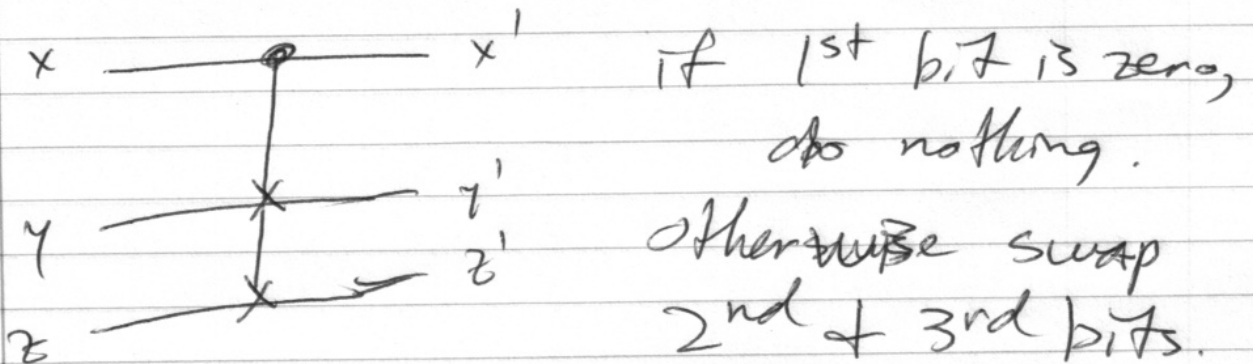 x x' if 1st bit is zero,
do nothing.
y y' otherwise swap
z z' 2nd + 3rd bits.